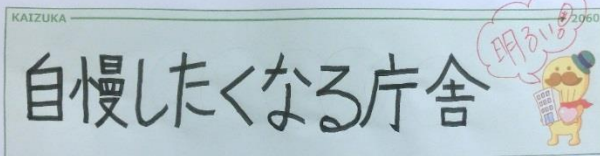 KAIZUKA
2060
自慢したくなる庁舎
明るい!!